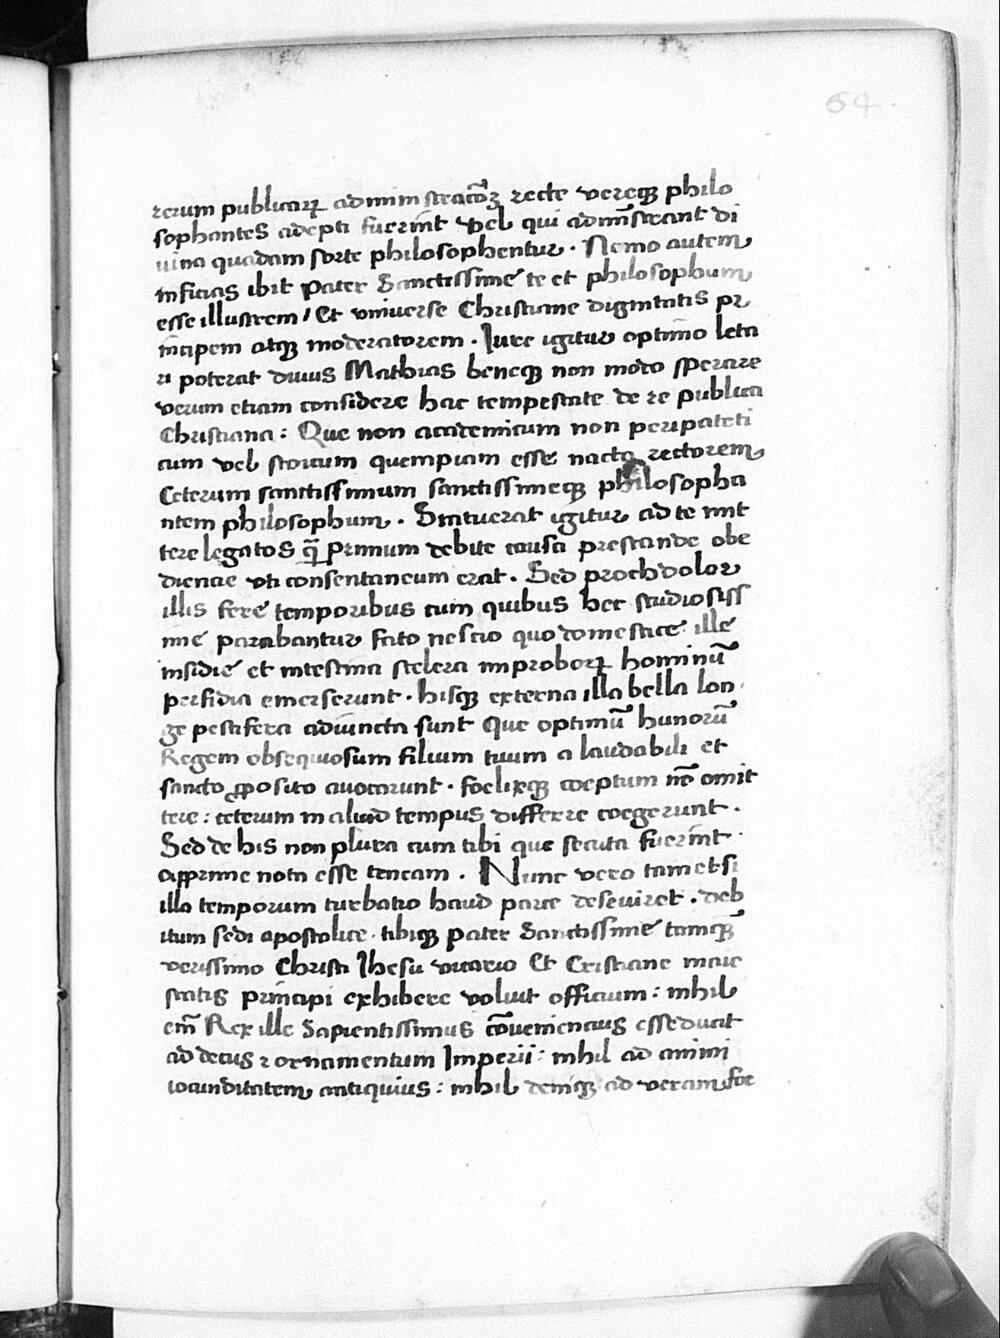 64.
rerum publicarꝝ administracōꝫ recte vereqꝫ philo
sophantes adepti fuerint vel qui admīstrant di
uina quadam sorte philosophentur. Nemo autem
inficias ibit Pater Sanctissime te et philosophum
esse illustrem / Et vniuerse Christiane dignitatis pr
incipem atqꝫ moderatorem. Iure igitur optimo leta
ri poterat diuus Mathias beneqꝫ non modo sperare
verum etiam considere hac tempestate de re publica
Christiana: Que non academicum non peripateti
cum vel stoicum quempiam esse nacta rectorem
Ceterum sanctissimum sanctissimeqꝫ philosopha
ntem philosophum. Statuerat igitur ad te mit
tere legatos q̄ primum debite causa prestande obe
diencie vti consentaneum erat. Sed proch dolor
illis fere temporibus cum quibus hec studiosiss
ime parabantur fato nescio quo domestice ille
insidie et intestina scelera improborꝝ hominū
perfidia emerserunt. hisqꝫ externa illa bella lon
ge pestifera adiuncta sunt Que optimū hunorū
Regem obsequiosum filium tuum a laudabili et
sancto ꝓposito auocarunt. foelixqꝫ coeptum nō omit
tere: ceterum in aliud tempus differre coegerunt.
Sed de his non plura cum tibi que secuta fuerint
apprime nota esse teneam. Nunc vero tametsi
illa temporum turbatio haud parce deseuiret. deb
itum sedi apostolice. tibiqꝫ Pater Sanctissime tamqꝫ
verissimo Christi Ihesu vicario Et Cristiane maie
statis principi exhibere voluit officium: nihil
em̄ Rex ille Sapientissimus cōueniencius esse ducit
ad decus ⁊ ornamentum Imperii: nihil ad animi
iocunditatem antiquius: nihil deniqꝫ ad veram foe